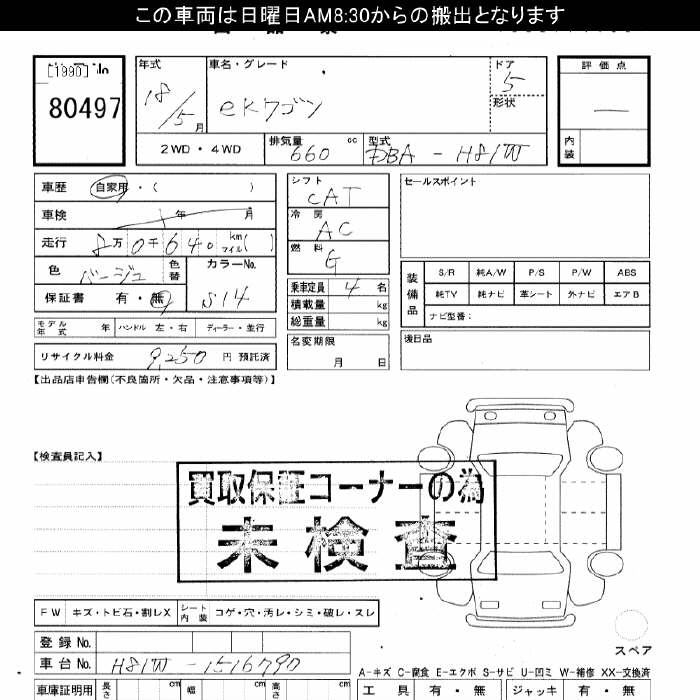 この車両は日曜日AM8:30からの搬出となります
[1990]
80497
年式
18/5月
車名・グレード
eKワゴン
ドア
5
形状
評価点
—
内装
2WD・4WD
排気量
660 cc
型式
DBA - H81W
車歴 自家用・( )
車検 年 月
走行 8万0千640 km マイル( )
色 ベージュ 色替
カラーNo. S14
保証書 有・無
モデル年式 年 ハンドル 左・右 ディーラー・並行
リサイクル料金 9,250 円 預託済
シフト
CAT
冷房
AC
燃料
G
乗車定員 4 名
積載量 kg
総重量 kg
名変期限
月 日
セールスポイント
装備品
S/R 純A/W P/S P/W ABS
純TV 純ナビ 革シート 外ナビ エアB
ナビ型番:
後日品
【出品店申告欄(不良箇所・欠品・注意事項等)】
【検査員記入】
買取保証コーナーの為
未検査
FW キズ・トビ石・割レX シート内装 コゲ・穴・汚レ・シミ・破レ・スレ
スペア
登録No.
車台No. H81W-1516790
A-キズ C-腐食 E-エクボ S-サビ U-凹ミ W-補修 XX-交換済
車庫証明用 長さ cm 幅 cm 高さ cm
工具 有・無 ジャッキ 有・無